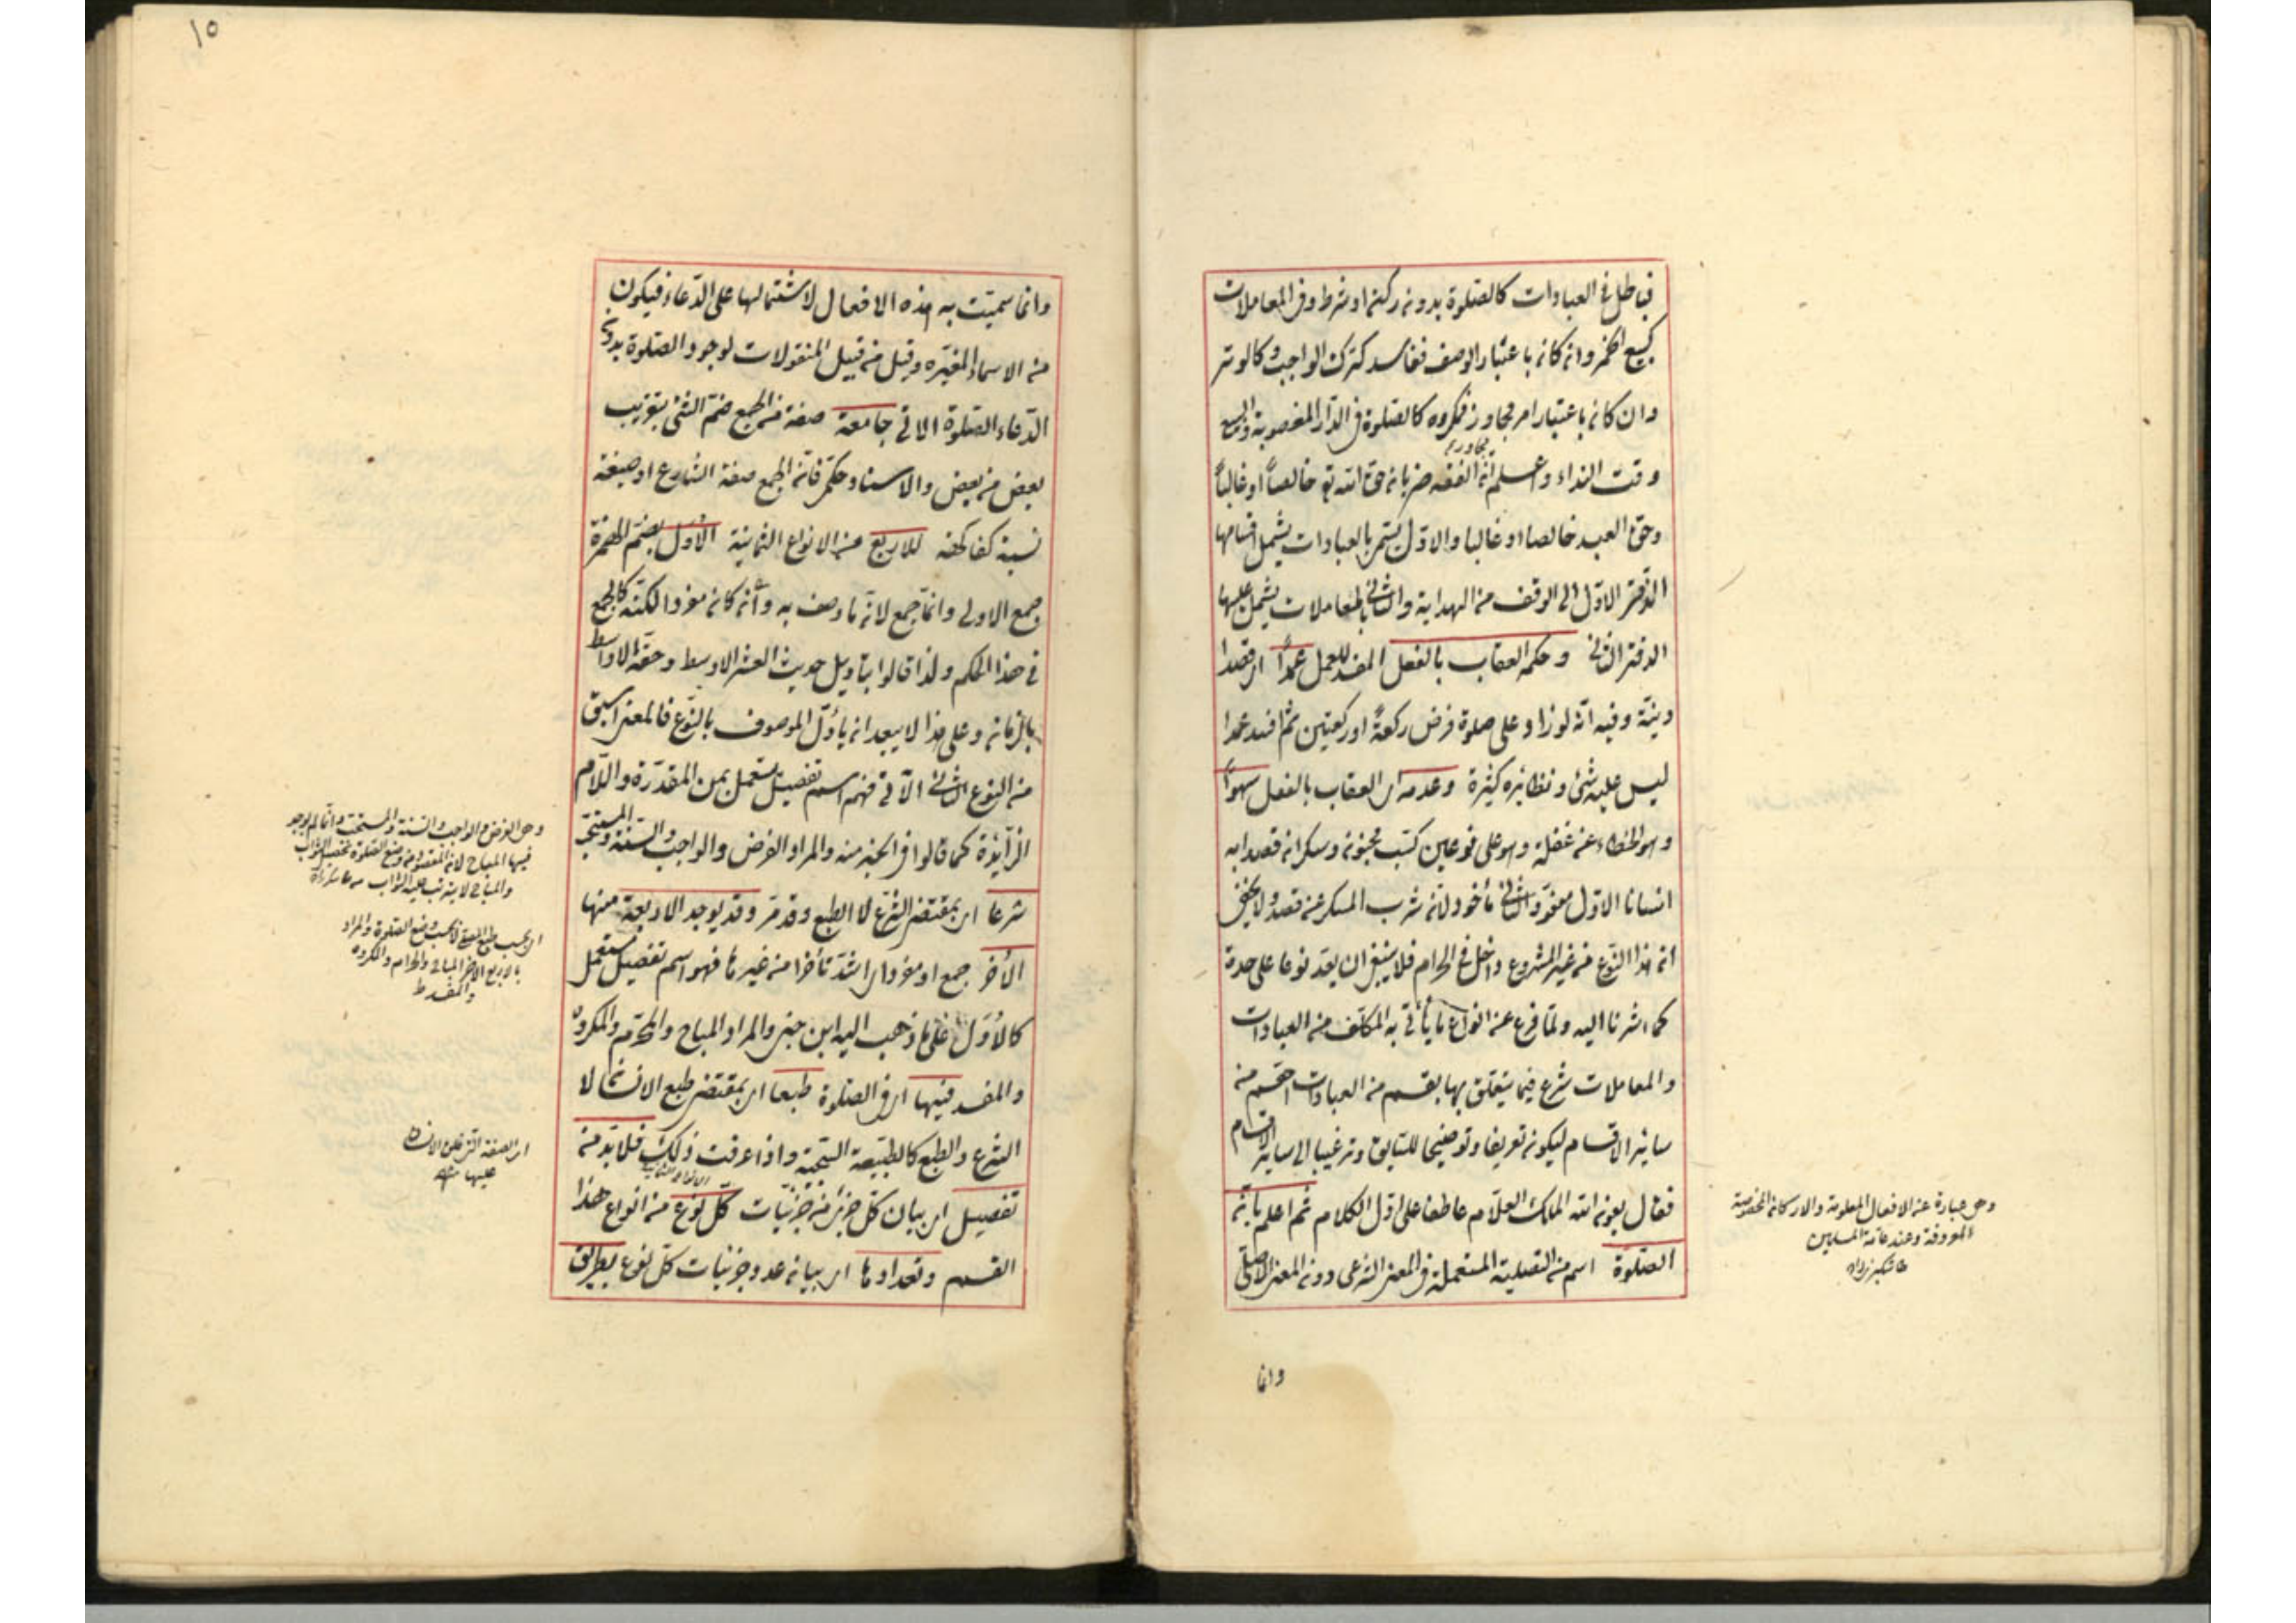 فباطل في العبادات كالصلوة بدون ركن او شرط وفي المعاملات
كبيع الخمر وان كان باعتبار الوصف ففاسد كترك الواجب وكالوتر
وان كان باعتبار امر مجاور فمكروه كالصلوة في الدار المغصوبة والبيع
وقت النداء واعلم ان الفقه ضربان حق الله تع خالصاً او غالباً
مجاورة
وحق العبد خالصا او غالبا والاول يتم بالعبادات يشمل اقسامها
الدفتر الاول الى الوقف من الهداية والثاني بالمعاملات يشمل عليها
الدفتر الثاني وحكمه العقاب بالفعل المفسد للعمل عمداً اى قصدا
ونية وفيه انه لو زاد على صلوة فرض ركعة او ركعتين ثم افسد عمدا
ليس عليه شئ ونظائره كثيرة وعدمه اى العقاب بالفعل سهواً
وهو الخطاء عن غفلة وهو على نوعين كسب مجنون وسكران قصدا به
انسانا الاول معفو والثاني مأخوذ لانه شرب المسكر عن قصد ولا يخفى
ان هذا النوع من غير المشروع داخل في الحرام فلا ينبغي ان يعد نوعا على حدة
كما اشرنا اليه ولما فرغ عن انواع ما يأتى به المكلف من العبادات
والمعاملات شرع فيما يتعلق بها بقسم من العبادات اهم من
سائر الاقسام ليكون تعريفا وتوضيحا للسابق وترغيبا الى سائر الاقسام
فقال بعون الله الملك العلام عاطفا على اول الكلام ثم اعلم بان
الصلوة اسم من التصلية المستعملة في المعنى الشرعى دون المعنى الاصلى
وهى عبارة عن الافعال المعلومة والاركان المخصوصة
المعروفة وعند عامة المسلمين
وانما
١٥
وانما سميت به هذه الافعال لاشتمالها على الدعاء فيكون
من الاسماء المغيرة وقيل من قبيل المنقولات لوجود الصلوة بدون
الدعاء الصلوة الاتى جامعة صفة من الجمع ضم الشئ بتقريب
بعض من بعض والاسناد حكمى فان الجمع صفة الشارع او صيغة
نسبة كفاكهة للاربع من الانواع الثمانية الاول بضم الهمزة
جمع الاولى وانما جمع لانه ما وصف به وان كان مفردا لكنه كالجمع
في هذا الحكم ولذا قالوا بتأويل حديث العشر الاوسط وحقه الاواسط
بالزمان وعلى هذا لا يبعد ان يأول الموصوف بالنوع فالمعنى اسبق
من النوع الثاني الآتى فهم اسم تفضيل يستعمل بمن المقدرة واللام
الزائدة كما قالوا في اخير منه والمراد الفرض والواجب والسنة والمستحب
شرعا اى بمقتضى الشرع لا الطبع وقد مر وقد يوجد الاربعة منها
الأخر جمع او مفرد اى اشد تأخرا من غيرها فهو اسم تفضيل يستعمل
كالاول على ما ذهب اليه ابن جنى والمراد المباح والمحرم والمكروه
والمفسد فيها اى في الصلوة طبعا اى بمقتضى طبع الانسان لا
الشرع والطبع كالطبيعة السجية واذا عرفت ذلك فلا بد من
تفصيل اى بيان كل جزئى من جزئيات كل نوع من انواع هذا
القسم وتعدادها اى بيان عدد جزئيات كل نوع بطريق
وهى الفرض والواجب والسنة والمستحب وانما لم يوجد
فيها المباح لان المقصود من وضع الصلوة تحصيل الثواب
والمباح لا يترتب عليه الثواب
اى بحسب طبع المصلى لا بحسب وضع الصلوة والمراد
بالاربع الاخر المباح والحرام والمكروه
والمفسد
اى الصفة التى خلق الانسان
عليها